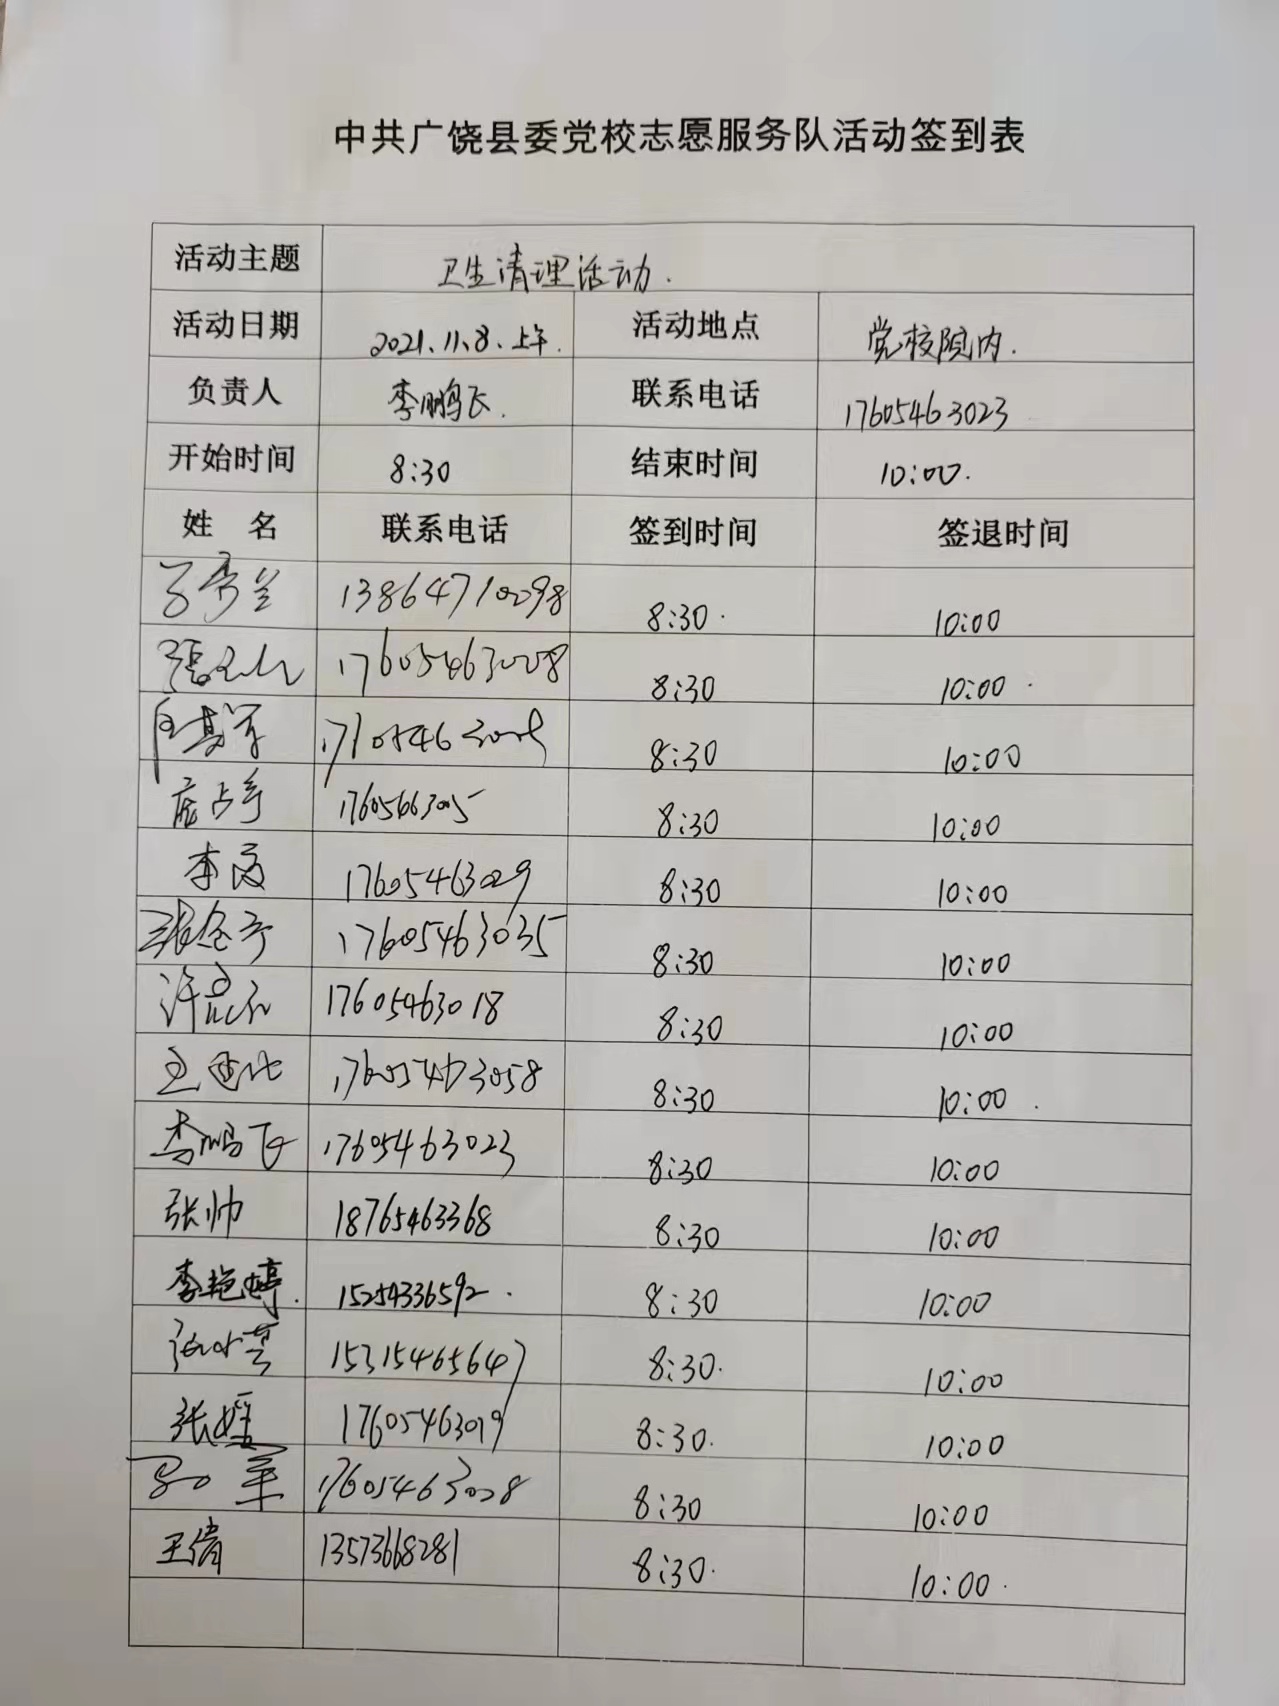 中共广饶县委党校志愿服务队活动签到表
活动主题 卫生清理活动.
活动日期 2021.11.8.上午. 活动地点 党校院内.
负责人 李鹏飞. 联系电话 17605463023
开始时间 8:30 结束时间 10:00.
姓 名 联系电话 签到时间 签退时间
13864710098 8:30. 10:00
8:30 10:00
8:30 10:00
8:30 10:00
17605463029 8:30 10:00
17605463035 8:30 10:00
17605463018 8:30 10:00
17605463058 8:30 10:00
李鹏飞 17605463023 8:30 10:00
张帅 18765463368 8:30 10:00
李艳婷. 15254336592. 8:30 10:00
15315465647 8:30. 10:00
张媛 17605463019 8:30. 10:00
8:30 10:00
王倩 13573668281 8:30. 10:00.